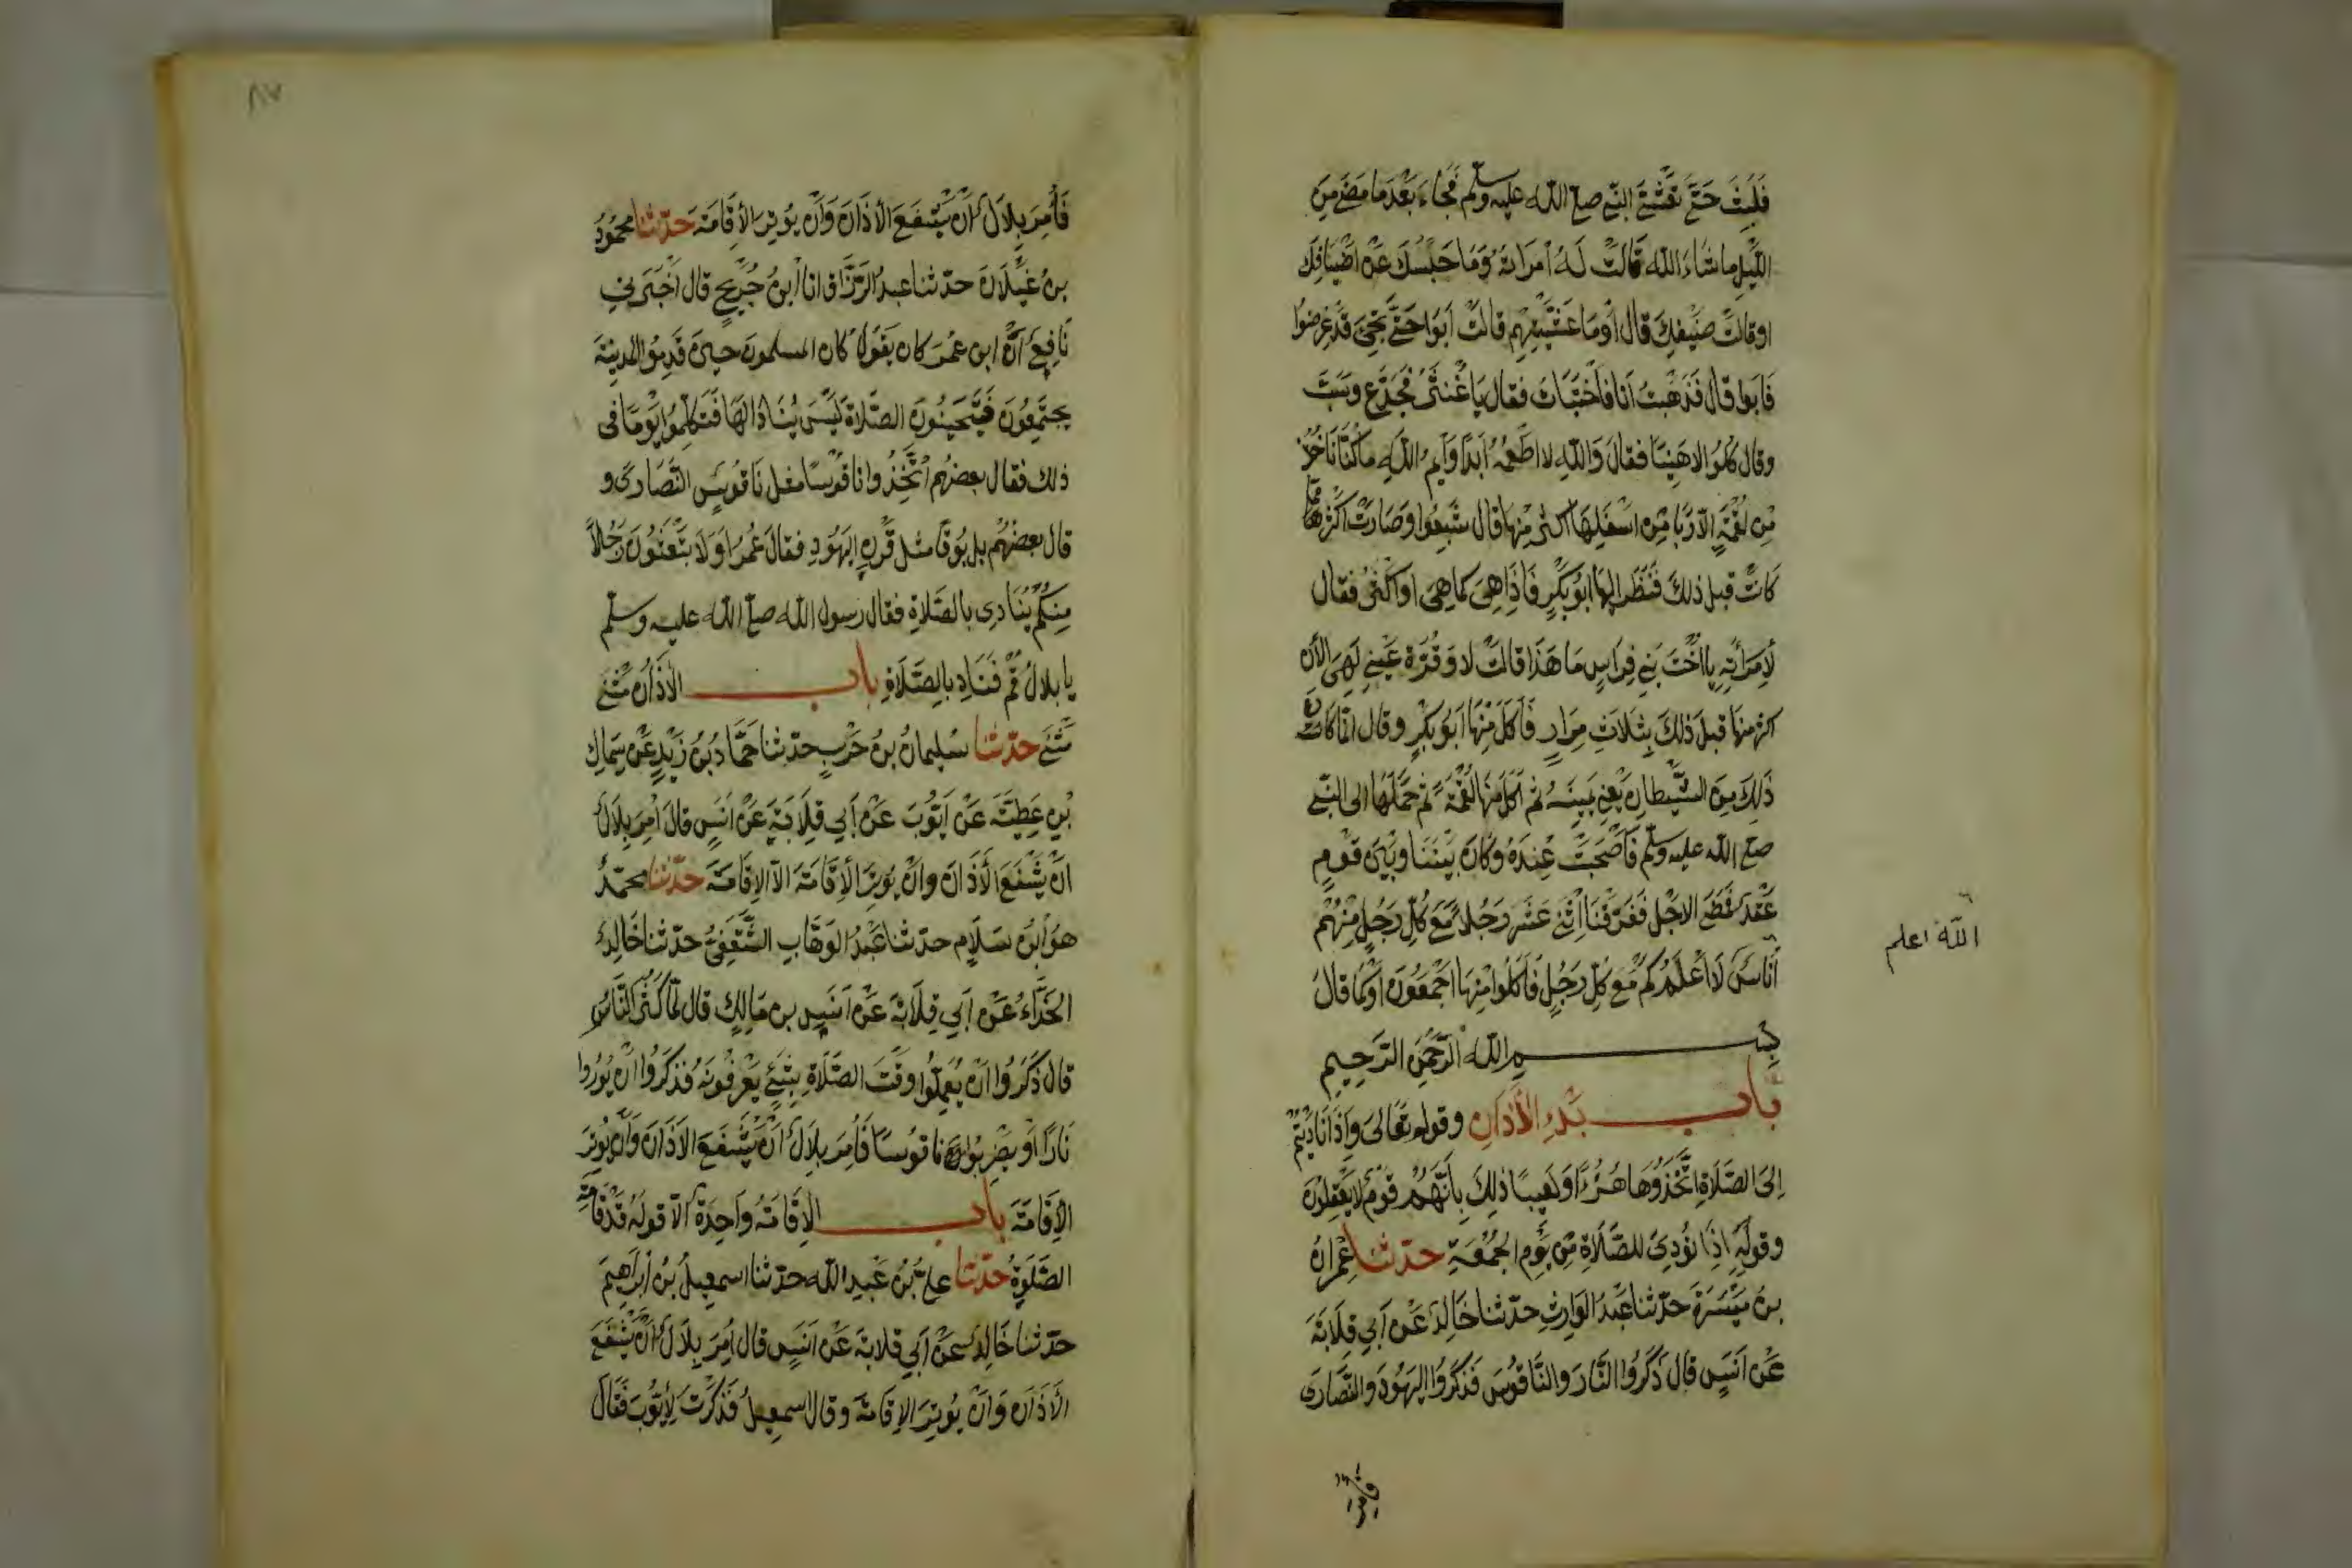 فَلَبِثَ حَتَّى تَعَشَّى النبي صلى الله عليه وسلم فَجَاءَ بَعْدَ مَا مَضَى مِنَ
اللَّيْلِ ما شَاءَ الله قَالَتْ لَهُ امْرَاتُهُ وَمَا حَبَسَكَ عَنْ اضْيَافِكَ
او قالتْ ضَيْفِكَ قال أوَمَا عَشَّيْتِهِمْ قالتْ أبَوْا حَتَّى تَجِيَ قَدْ عُرِضُوا
فَابَوا قال فَذَهَبْتُ أنَا فَاخْتَبَاتُ فقال يَا غُنْثَرُ فَجَدَّعَ وسَبَّ
وقال كُلُوا لا هَنِيًّا فقالَ وَاللهِ لا اطْعَمُهُ أبَدًا وَأيْمُ اللهِ مَا كُنَّا نَاخُذُ
مِنْ لُقْمَةٍ الَّا رَبَا مِنْ اسْفَلِهَا اكثرُ مِنْهَا قال شَبِعُوا وصَارَتْ اكْثَرَ مِمَّا
كَانَتْ قبل ذلكَ فَنَظَرَ اليها ابُو بَكْرٍ فَاذَا هِيَ كما هِيَ او اكْثَرُ فقال
لِامْرَأتِهِ يا اخْتَ بَنِي فِرَاسٍ مَا هَذَا قالتْ لا وَقُرَّةِ عَيْنِي لَهِيَ الآنَ
اكثرُ منها قبلَ ذلكَ بِثَلَاثِ مِرَارٍ فَاكَلَ مِنْهَا ابُو بَكْرٍ وقال انَّما كانَ
ذلِكَ مِنَ الشَّيْطانِ يَعْنِي يَمِينَهُ ثم اكَلَ مِنْهَا لُقْمَةً ثم حَمَلَهَا الى النبي
صلى الله عليه وسلم فَأَصْبَحَتْ عِنْدَهُ وَكَانَ بَيْنَنَا وبَيْنَ قَوْمٍ
عَقْدٌ فَمَضَى الاجَلُ فَفَرَّقْنَا اثْنَي عَشَرَ رَجُلاً مَعَ كُلِّ رَجُلٍ مِنْهُمْ
أنَاسٌ الله اعلم كَمْ مَعَ كُلِّ رَجُلٍ فَاكَلُوا مِنْهَا اجْمَعُونَ أوْ كَمَا قَالَ
بسم الله الرَّحْمَنِ الرَّحِيمِ
بَاب بَدْءِ الْأَذَانِ وقوله تَعَالىَ وَإِذَا نَادَيْتُمْ
إِلىَ الصَّلَاةِ اتَّخَذُوهَا هُزُءًا وَلَعِبًا ذلِكَ بِأَنَّهُمْ قَوْمٌ لا يَعْقِلُونَ
وقَولِهِ اذَا نُودِيَ للصَّلَاةِ مِنْ يَوْمِ الجُمُعَةِ حدثنا عِمْرَانُ
بنُ مَيْسَرَةَ حدّثنا عَبْدُ الوَارِثِ حدّثنا خَالِدٌ عَنْ أبِي قِلَابَةَ
عَنْ أنَسٍ قال ذَكَرُوا النَّارَ والنَّاقُوسَ فَذَكَرُوا اليَهُودَ والنَّصَارَى
فامر
الله اعلم
٨٧
فَأُمِرَ بِلَالٌ أنْ يَشْفَعَ الأَذَانَ وَأنْ يُوتِرَ الأِقَامَةَ حدّثنا محمُودُ
بنُ غَيْلَانَ حدّثنا عبدُ الرَّزَّاقِ انا ابنُ جُرَيجٍ قال أخْبَرَنِي
نَافِعٌ أنَّ ابن عُمَرَ كان يَقُولُ كان المسلمونَ حينَ قَدِمُوا المَدِينَةَ
يجتَمِعُونَ فَيَتَحَيَّنُونَ الصَّلَاةَ لَيْسَ يُنَادَا لَهَا فَتَكَلَّمُوا يَوْمًا في
ذلك فقال بعضُهُم اتَّخِذُوا نَاقُوسًا مثل نَاقُوسِ النَّصَارَى و
قال بعضُهُمْ بل بُوقًا مثل قَرْنِ اليَهُودِ فقالَ عُمَرُ اوَلَا تَبْعَثُونَ رَجُلاً
مِنكُمْ يُنَادِى بالصَّلَاةِ فقال رسول الله صلى الله عليه وسلم
يا بلالُ قُمْ فَنَادِ بالصَّلَاةِ باب الأَذَانُ مَثْنَى
مَثْنَى حدّثنا سُليمانُ بنُ حَرْبٍ حدّثنا حَمَّادُ بنُ زَيْدٍ عَنْ سِمَاكِ
بْنِ عَطِيَّةَ عَنْ أيُّوبَ عَنْ أبِي قِلَابَةَ عَنْ أنَسٍ قال أُمِرَ بِلَالٌ
انْ يَشْفَعَ الأَذَانَ وانْ يُوتِرَ الأِقَامَةَ الاّ الإقَامَةَ حدّثنا محمّدٌ
هوَ ابنُ سَلَامٍ حدّثنا عَبْدُ الوَهَّابِ الثَّقَفِيُّ حدّثنا خَالِدٌ
الحَذَّاءُ عَنْ أبِي قِلَابَةَ عَنْ أنَسِ بنِ مَالِكٍ قال لمّا كَثُرَ النَّاسُ
قال ذَكَرُوا انْ يُعْلِمُوا وقْتَ الصَّلَاةِ بِشَيْءٍ يَعْرِفُونَهُ فذكَرُوا انْ يُورُوا
نَارًا أوْ يَضْرِبُوا ناقُوسًا فَأُمِرَ بِلَالٌ أنْ يَشْفَعَ الأَذَانَ وَأنْ يُوتِرَ
الإِقَامَةَ باب الإِقَامَةُ وَاحِدَةٌ الّا قولَهُ قَدْ قَامَتِ
الصَّلَوةُ حدّثنا عليُّ بنُ عَبْدِ الله حدّثنا اسمعِيلُ بنُ ابْرَاهِيمَ
حدّثنا خَالِدٌ عَنْ أبِي قِلَابَةَ عَنْ أنَسٍ قال أُمِرَ بِلَالٌ أنْ يَشْفَعَ
الأَذَانَ وَأنْ يُوتِرَ الإقَامَةَ وقال اسمعِيلُ فَذَكَرْتُ لِأَيُّوبَ فَقَالَ